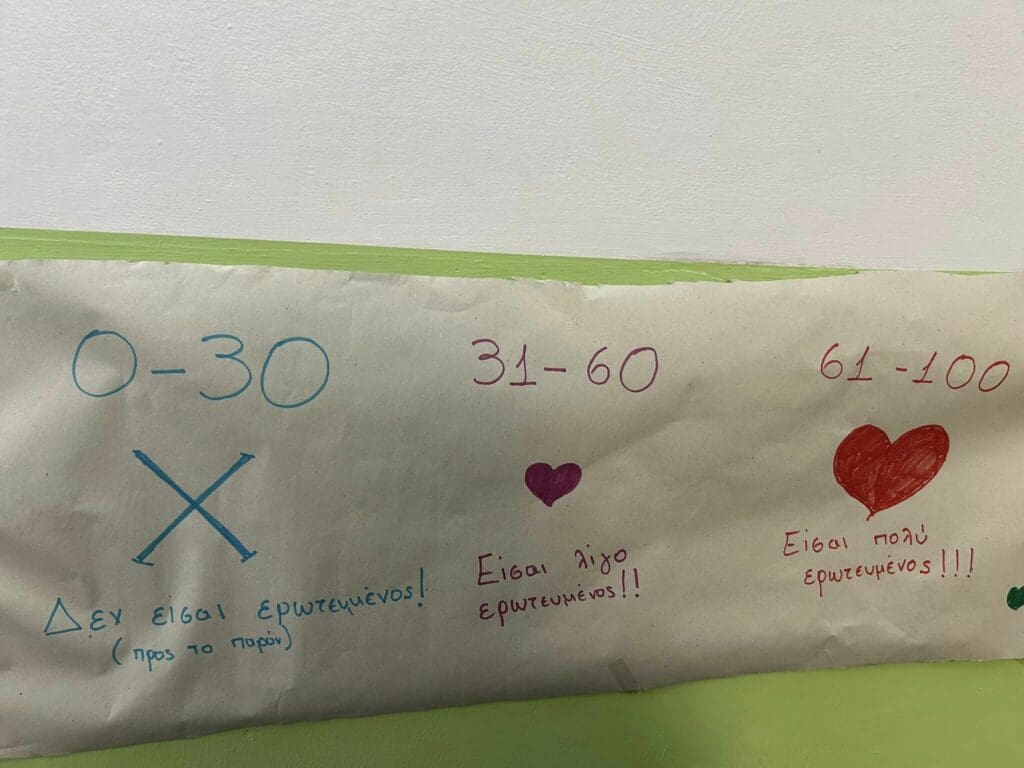 0-30
Δεν είσαι ερωτευμένος!
(προς το παρόν)
31-60
Είσαι λίγο
ερωτευμένος!!
61-100
Είσαι πολύ
ερωτευμένος!!!